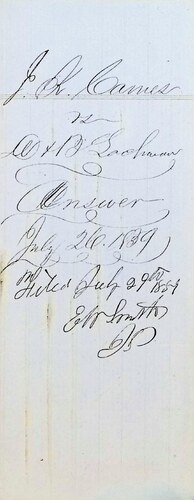 J. K. Carnes
vs
& B Lochman
Answer
July 26. 1859
Filed July 29th 1859
E W Smith